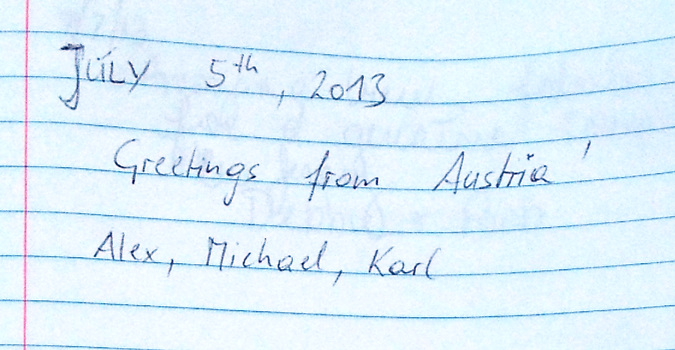 JULY 5th, 2013
Greetings from Austria!
Alex, Michael, Karl